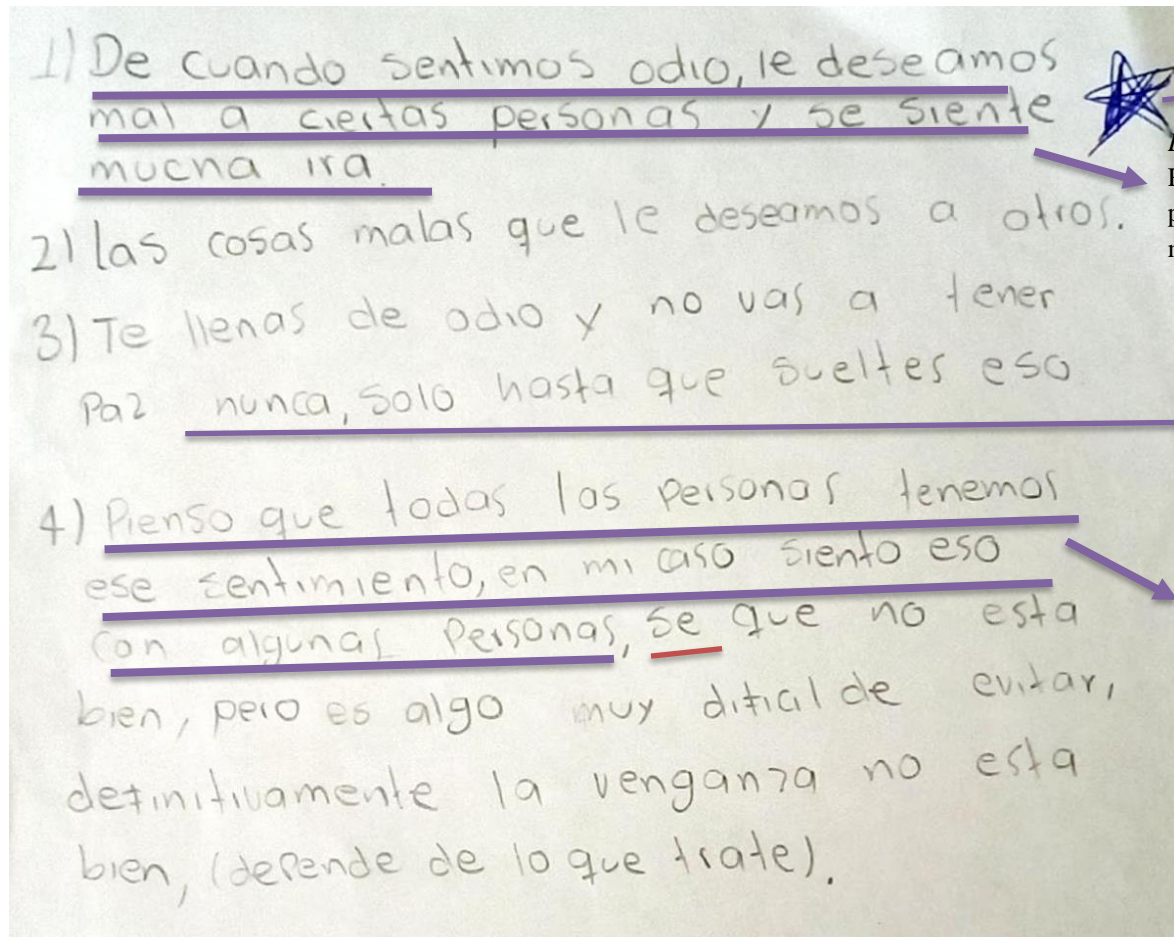 1) De cuando sentimos odio, le deseamos
mal a ciertas personas y se siente
mucha ira.
2) las cosas malas que le deseamos a otros.
3) Te llenas de odio y no vas a tener
Paz nunca, solo hasta que sueltes eso
4) Pienso que todas las personas tenemos
ese sentimiento, en mi caso siento eso
con algunas Personas, se que no esta
bien, pero es algo muy dificil de evitar,
definitivamente la venganza no esta
bien, (depende de lo que trate).